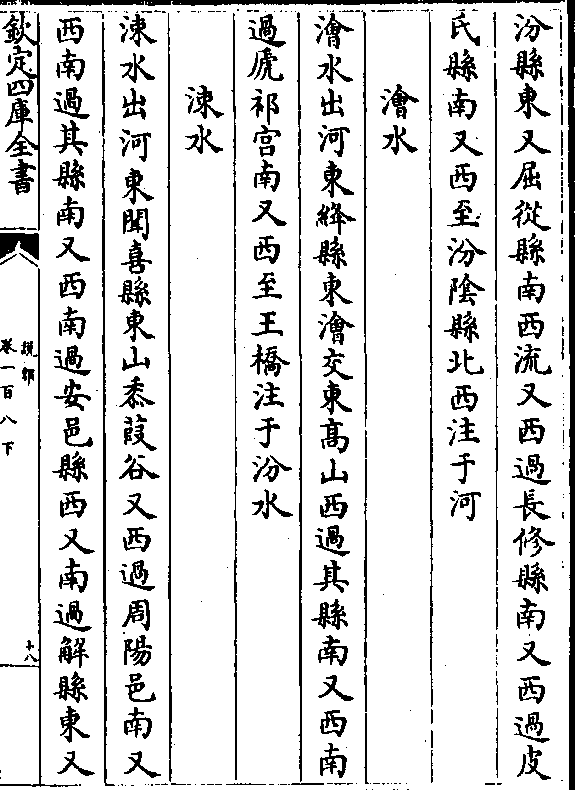 汾縣東又屈從縣南西流又西過長修縣南又西過皮
氏縣南又西至汾陰縣北西注于河
澮水
澮水出河東絳縣東澮交東高山西過其縣南又西南
過虒祁宫南又西至王橋注于汾水
涑水
涑水出河東聞喜縣東山黍葭谷又西過周陽邑南又
西南過其縣南又西南過安邑縣西又南過解縣東又
欽定四庫全書
說郛
卷一百八下
十八